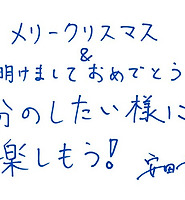 メリークリスマス
&
明けましておめでとう
分のしたい様に
楽しもう!
安田